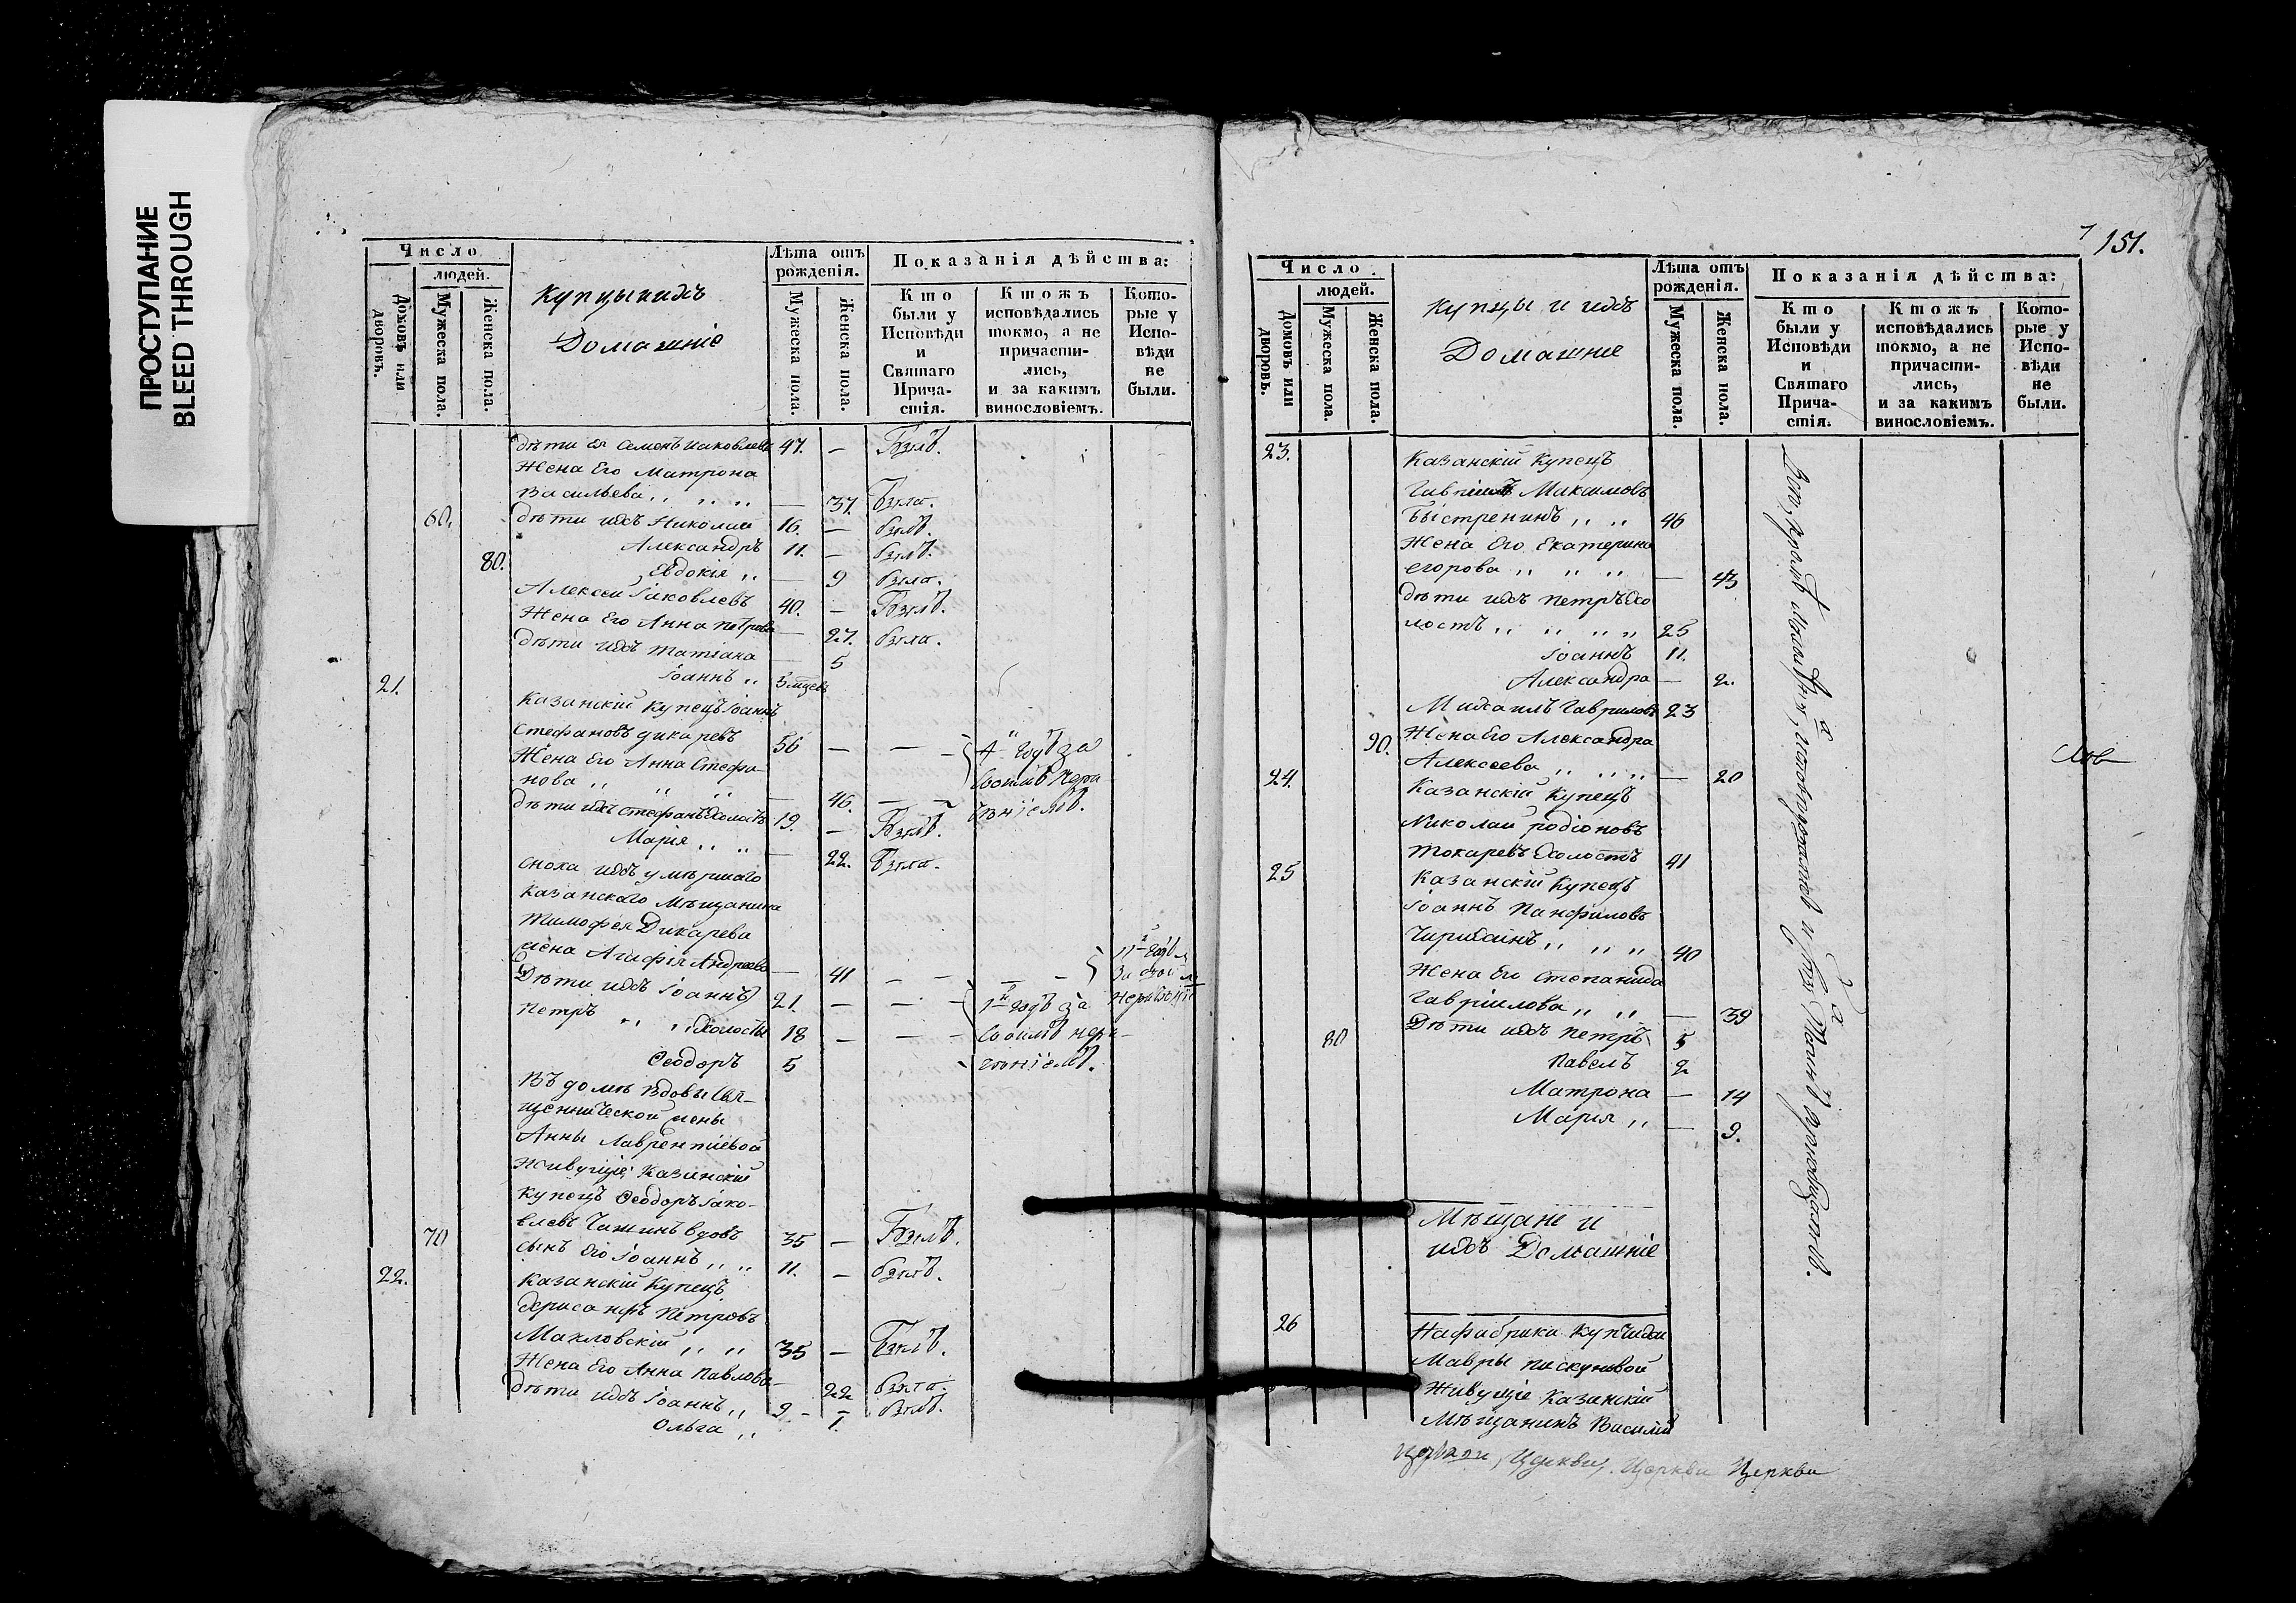 ПРОСТУПАНИЕ
BLEED THROUGH
Число
людей.
Домовъ или дворовъ.
Мужеска пола.
Женска пола.
Купцы и ихъ
Домашніе
Лѣта отъ рожденія.
Мужеска пола.
Женска пола.
Показанія дѣйства:
Кто были у Исповѣди и Святаго Прича-стія.
Ктожъ исповѣдались токмо, а не причасти-лись, и за какимъ винословіемъ.
Кото-рые у Испо-вѣди не были.
дѣти ея Семенъ Иаковлевъ 47. — Былъ.
Жена Его Матрона
Васильева ,, ,, ,, — 37. Была.
60. дѣти ихъ Николай 16. — былъ.
Александръ 11. — былъ.
80. Евдокія ,, — 9 была.
Алексей Іаковлевъ 40. — Былъ.
Жена Его Анна Петрова — 27. была.
дѣти ихъ Татіана — 5
Іоаннъ ,, 3 мцевъ
21. Казанскій Купецъ Іоаннъ
Стефановъ Дикаревъ 56 — — 4 годъ за
Жена Его Анна Стефа- своимъ нера-
нова ,, ,, ,, — 46. — — ѣніемъ.
дѣти ихъ Стефанъ холостъ 19. — Былъ.
Марія ,, ,, — 22. Была.
сноха ихъ умѣршаго
Казанскаго Мѣщанина
Тимофея Дикарева
жена Агафія Андреева — 41 — — —
Дѣти ихъ Іоаннъ 21. — — 1 годъ за
Петръ ,, ,, холосты 18 — — своимъ нера-
Ѳеодоръ 5
Въ домѣ Вдовы Свя-
щеннической жены
Анны Лаврентіевой
Живущіе Казанскій
Купецъ Ѳеодоръ Іако-
70 влевъ Чашинъ вдовъ 35 — Былъ.
сынъ Его Іоаннъ ,, ,, 11. — былъ.
22. Казанскій Купецъ
Хрисанфъ Петровъ
Макловскій ,, ,, 35 — Былъ.
Жена Его Анна Павлова — 22 была.
дѣти ихъ Іоаннъ ,, 9 — былъ.
Ольга ,, 1.
151.
Число
людей.
Домовъ или дворовъ.
Мужеска пола.
Женска пола.
Купцы и ихъ
Домашніе
Лѣта отъ рожденія.
Мужеска пола.
Женска пола.
Показанія дѣйства:
Кто были у Исповѣди и Святаго Прича-стія.
Ктожъ исповѣдались токмо, а не причасти-лись, и за какимъ винословіемъ.
Кото-рые у Испо-вѣди не были.
23. Казанскій Купецъ
Гавріилъ Максимовъ
Быстренинъ ,, ,, 46
Жена Его Екатерина
Егорова ,, ,, ,, — 43
дѣти ихъ Петръ хо
лостъ ,, ,, ,, ,, 25
Іоаннъ 11.
Александра — 2.
Михаилъ Гавриловъ 23
90. Жена Его Александра
Алексеева ,, ,, ,, — 20
24. Казанскій Купецъ
Николай Родіоновъ
Токаревъ холостъ 41
25 Казанскій Купецъ
Іоаннъ Панфиловъ
,, ,, ,, 40
Жена Его Степанида
Гавріилова ,, ,, — 39
80 Дѣти ихъ Петръ 5
Павелъ 2
Матрона — 14
Марія ,, — 9.
Мѣщане и
ихъ Домашніе
26 На фабрики Купчихи
Мавры Пискуновой
Живущіе Казанскій
Мѣщанинъ Василій
Церкви, Церкви, Церкви Церкви